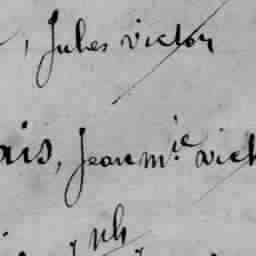 , Jules victor
ais, Jean m.ie vict